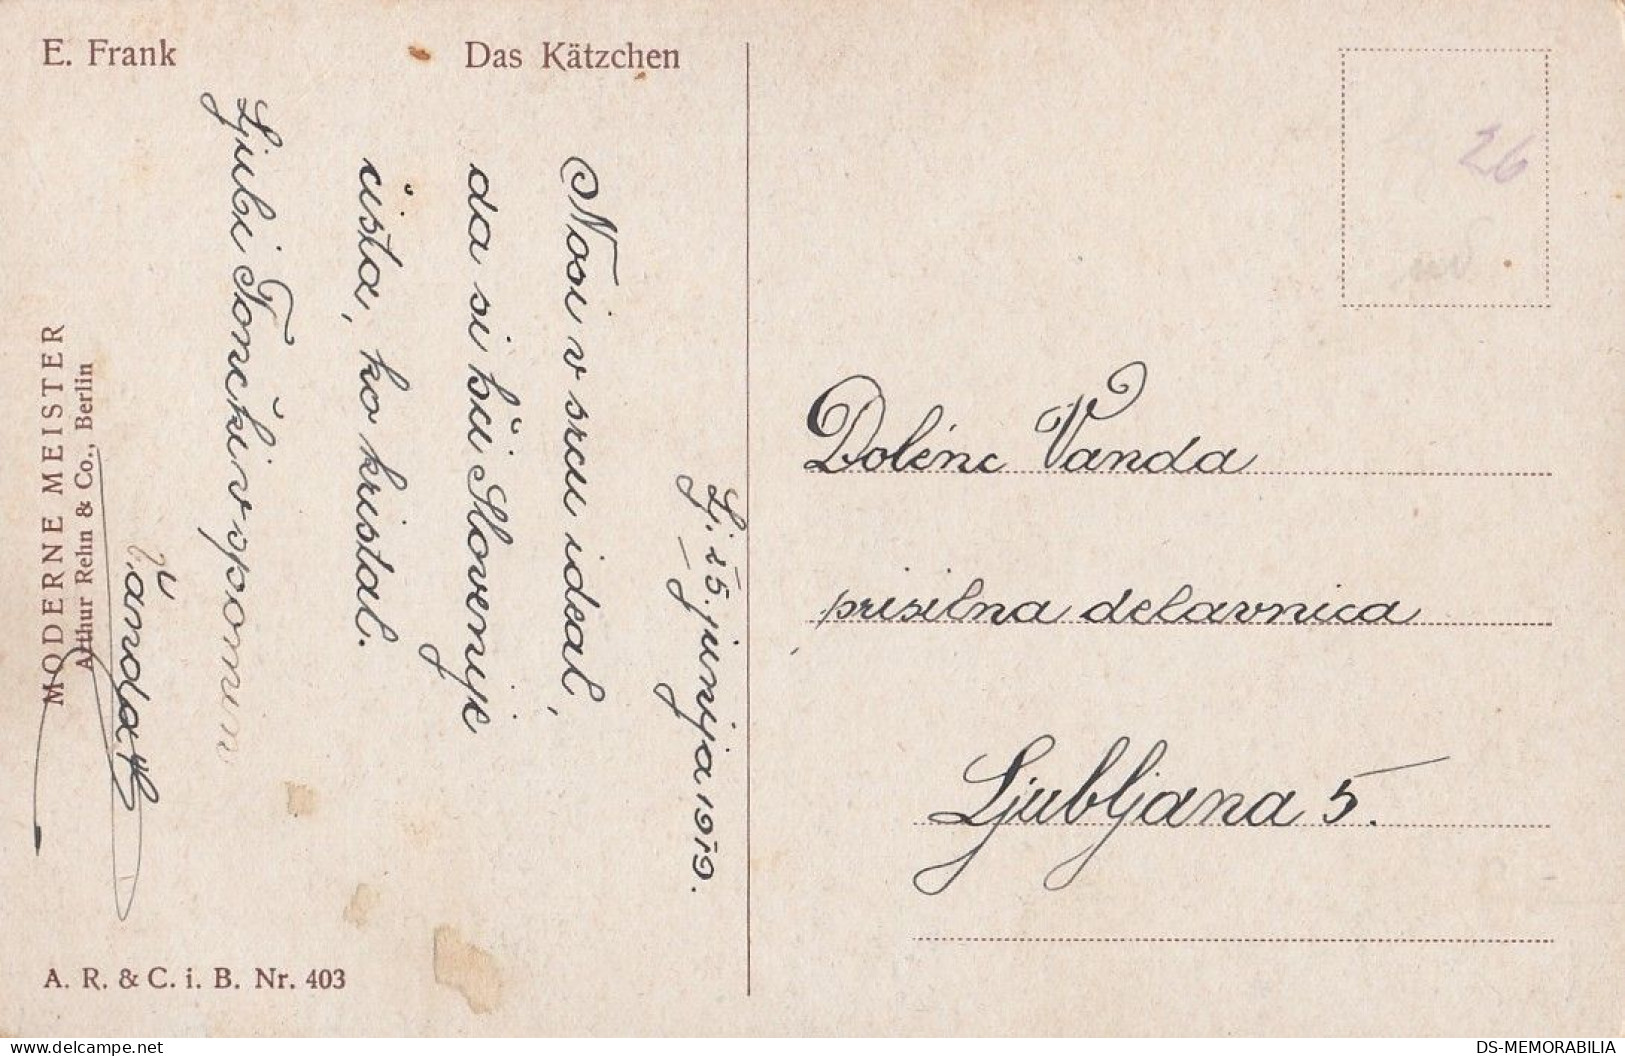 E. Frank
Das Kätzchen
Lj. 25. junija 1919.
Nosi v srcu ideal,
da si hči Slovenije
čista, ko kristal.
Ljubi Tončki v spomin
Vanda
MODERNE MEISTER
Arthur Rehn & Co., Berlin
A. R. & C. i. B. Nr. 403
26
Dolenc Vanda
prisilna delavnica
Ljubljana 5.
www.delcampe.net
DS-MEMORABILIA